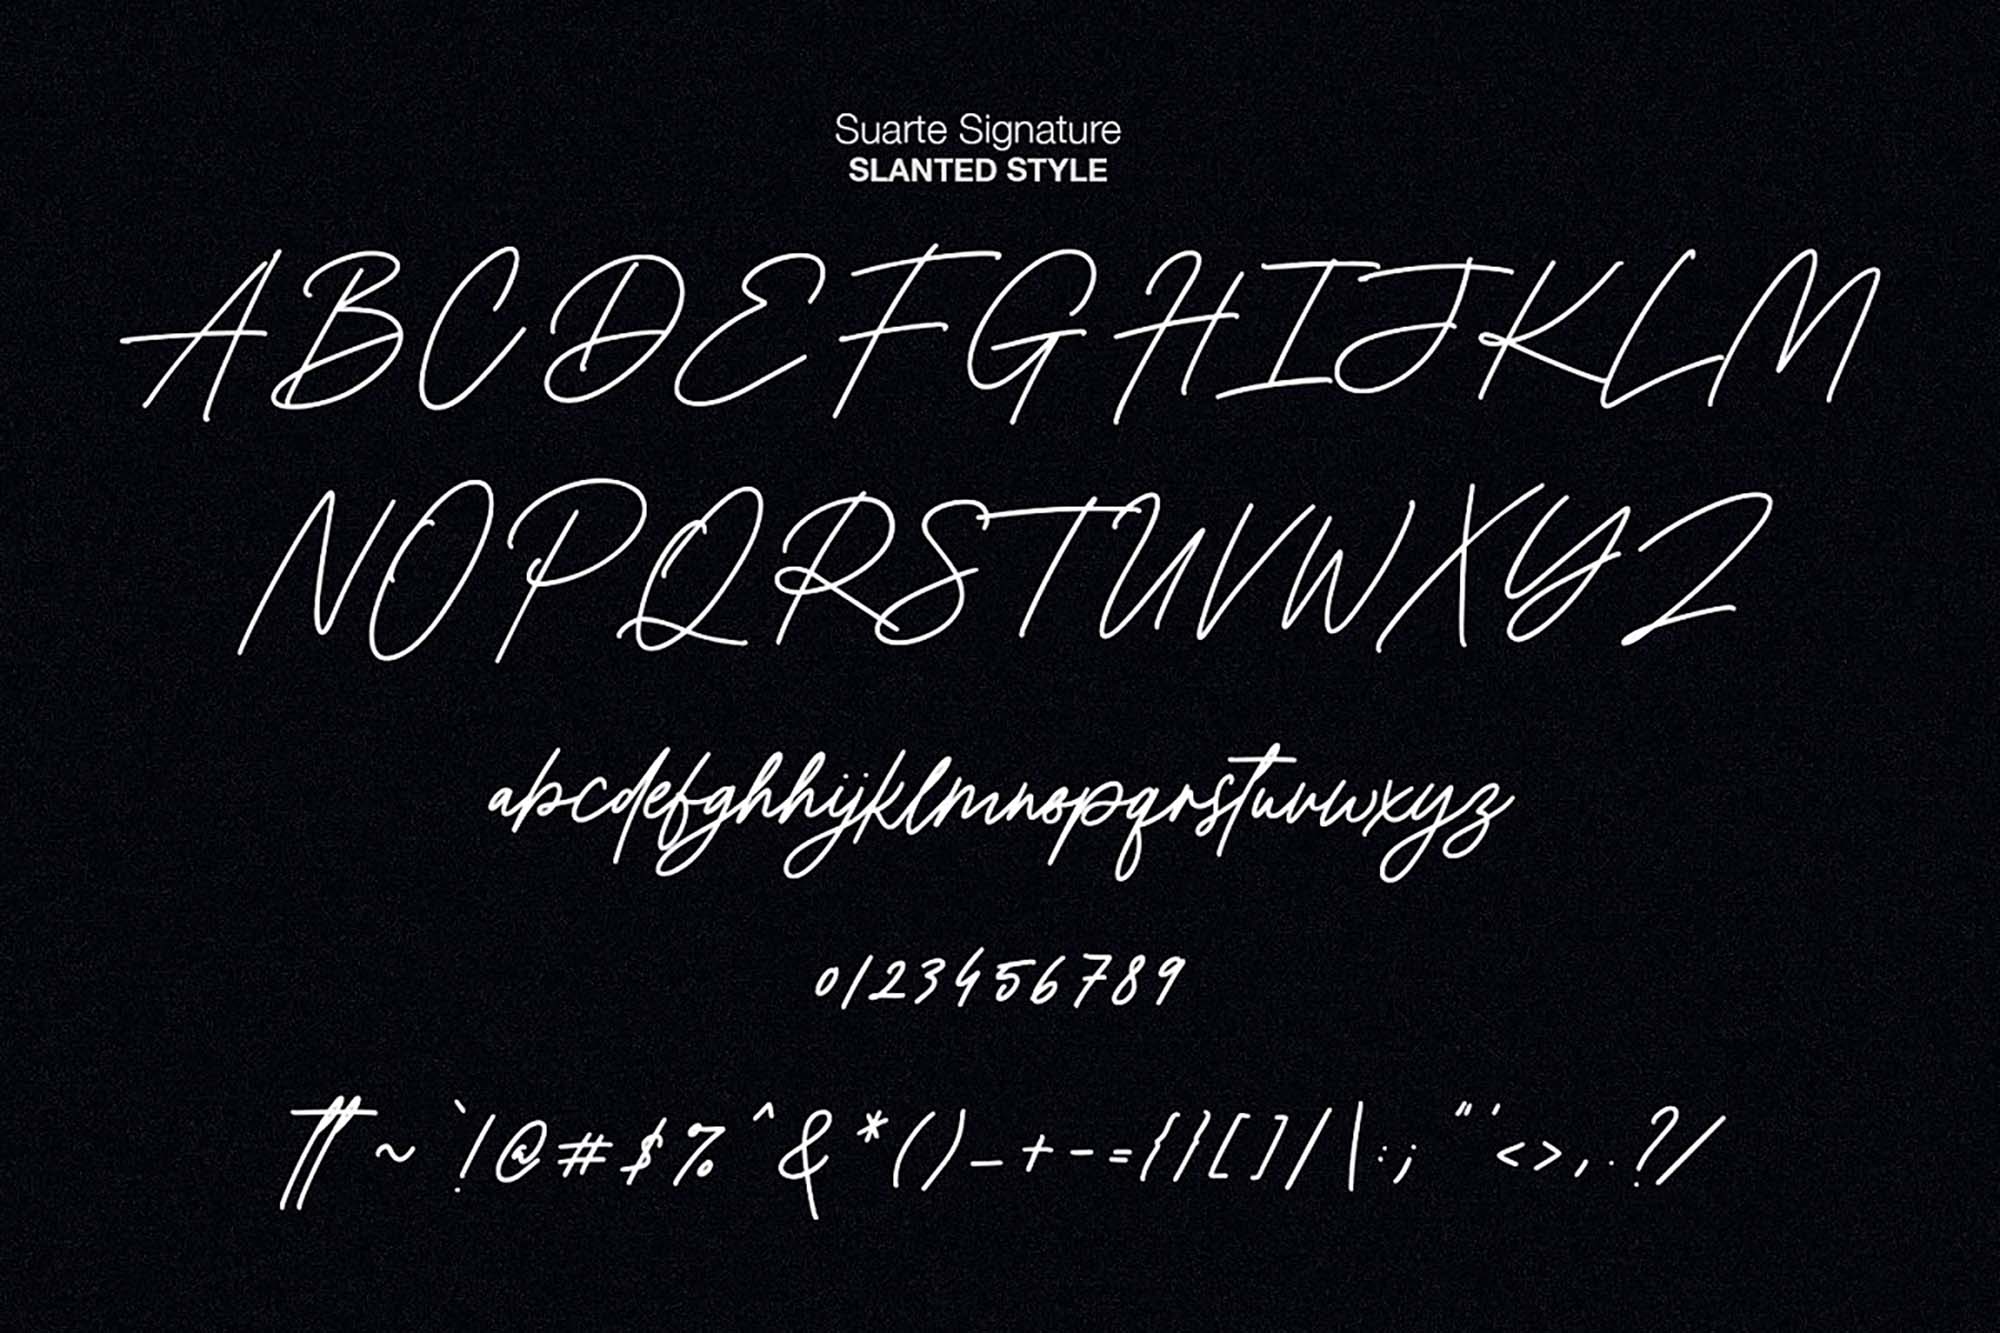 Suarte Signature
SLANTED STYLE
ABCDEFGHIJKLM
NOPQRSTUVWXYZ
abcdefghhijklmnopqrstuvwxyz
0123456789
tt~`!@#$%^&*()_+-={}[]/\:;"'<>,.?/